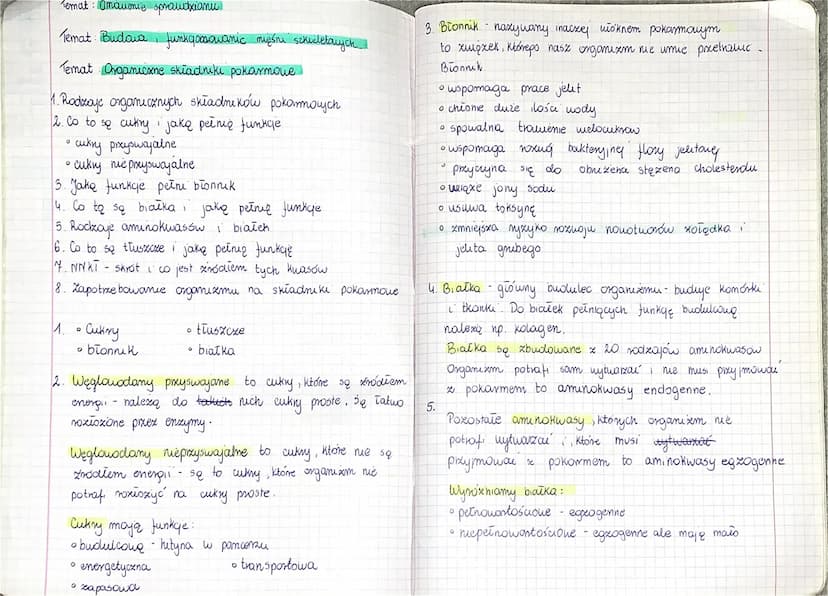 Temat: Omówienie sprawdzianu
Temat: Budowa i funkcjonowanie mięśni szkieletowych
Temat: Organiczne składniki pokarmowe
1. Rodzaje organicznych składników pokarmowych
2. Co to są cukry i jaką pełnię funkcje
• cukry przyswajalne
• cukry nieprzyswajalne
3. Jaką funkcje pełni błonnik
4. Co to są białka i jaką pełnię funkcje
5. Rodzaje aminokwasów i białek
6. Co to są tłuszcze i jaką pełnię funkcję
7. NNKT - skrót i co jest źródłem tych kwasów
8. Zapotrzebowanie organizmu na składniki pokarmowe
1. • Cukry • tłuszcze
• błonnik • białka
2. Węglowodany przyswajane to cukry, które są źródłem
energii - należą do nich cukry proste. Są łatwo
rozłożone przez enzymy.
Węglowodany nieprzyswajalne to cukry, które nie są
źródłem energii - są to cukry, które organizm nie
potrafi rozłożyć na cukry proste.
Cukry mają funkcje:
• budulcową - hityna w pancerzu
• energetyczna • transportowa
• zapasowa
3. Błonnik - nazywany inaczej włóknem pokarmowym
to związek, którego nasz organizm nie umie przetrawić.
Błonnik
• wspomaga prace jelit
• chłonie duże ilości wody
• spowalnia trawienie
• wspomaga rozwój bakteryjnej flory jelitowej
• przyczyna się do obniżenia stężenia cholesterolu
• wiąże jony sodu
• usuwa toksynę
• zmniejsza ryzyko rozwoju nowotworów żołądka i
jelita grubego
4. Białka - główny budulec organizmu - buduje komórki
i tkanki. Do białek pełniących funkcję budulcową
należą np. kolagen.
Białka są zbudowane z 20 rodzajów aminokwasów
Organizm potrafi sam wytwarzać i nie musi przyjmować
z pokarmem to aminokwasy endogenne.
5.
Pozostałe aminokwasy, których organizm nie
potrafi wytwarzać i, które musi wytwarzać
przyjmować z pokarmem to aminokwasy egzogenne
Wyróżniamy białka:
• pełnowartościowe - egzogenne
• niepełnowartościowe - egzogenne ale mają mało